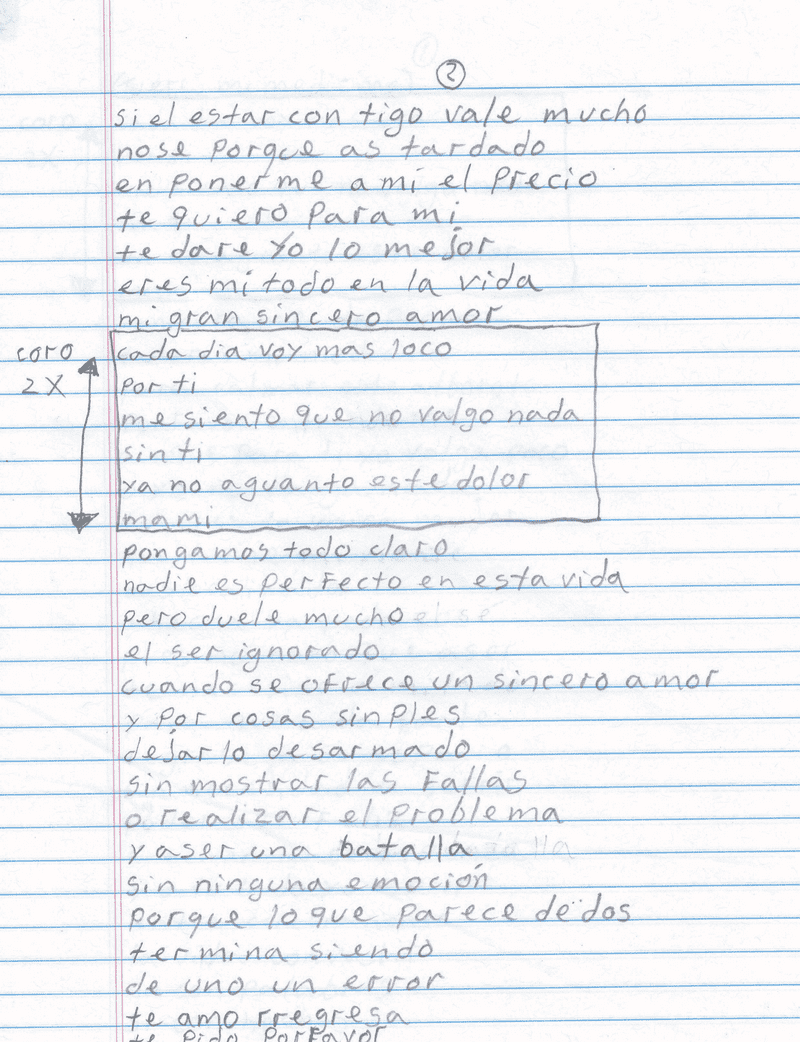 2
si el estar con tigo vale mucho
nose porque as tardado
en ponerme a mí el precio
te quiero para mi
te dare yo lo mejor
eres mi todo en la vida
mi gran sincero amor
coro
2X
cada dia voy mas loco
por ti
me siento que no valgo nada
sin ti
ya no aguanto este dolor
mami
pongamos todo claro
nadie es perfecto en esta vida
pero duele mucho
el ser ignorado
cuando se ofrece un sincero amor
y por cosas sinples
dejarlo desarmado
sin mostrar las fallas
o realizar el problema
y aser una batalla
sin ninguna emoción
porque lo que parece de dos
termina siendo
de uno un error
te amo rregresa
te pido porfavor